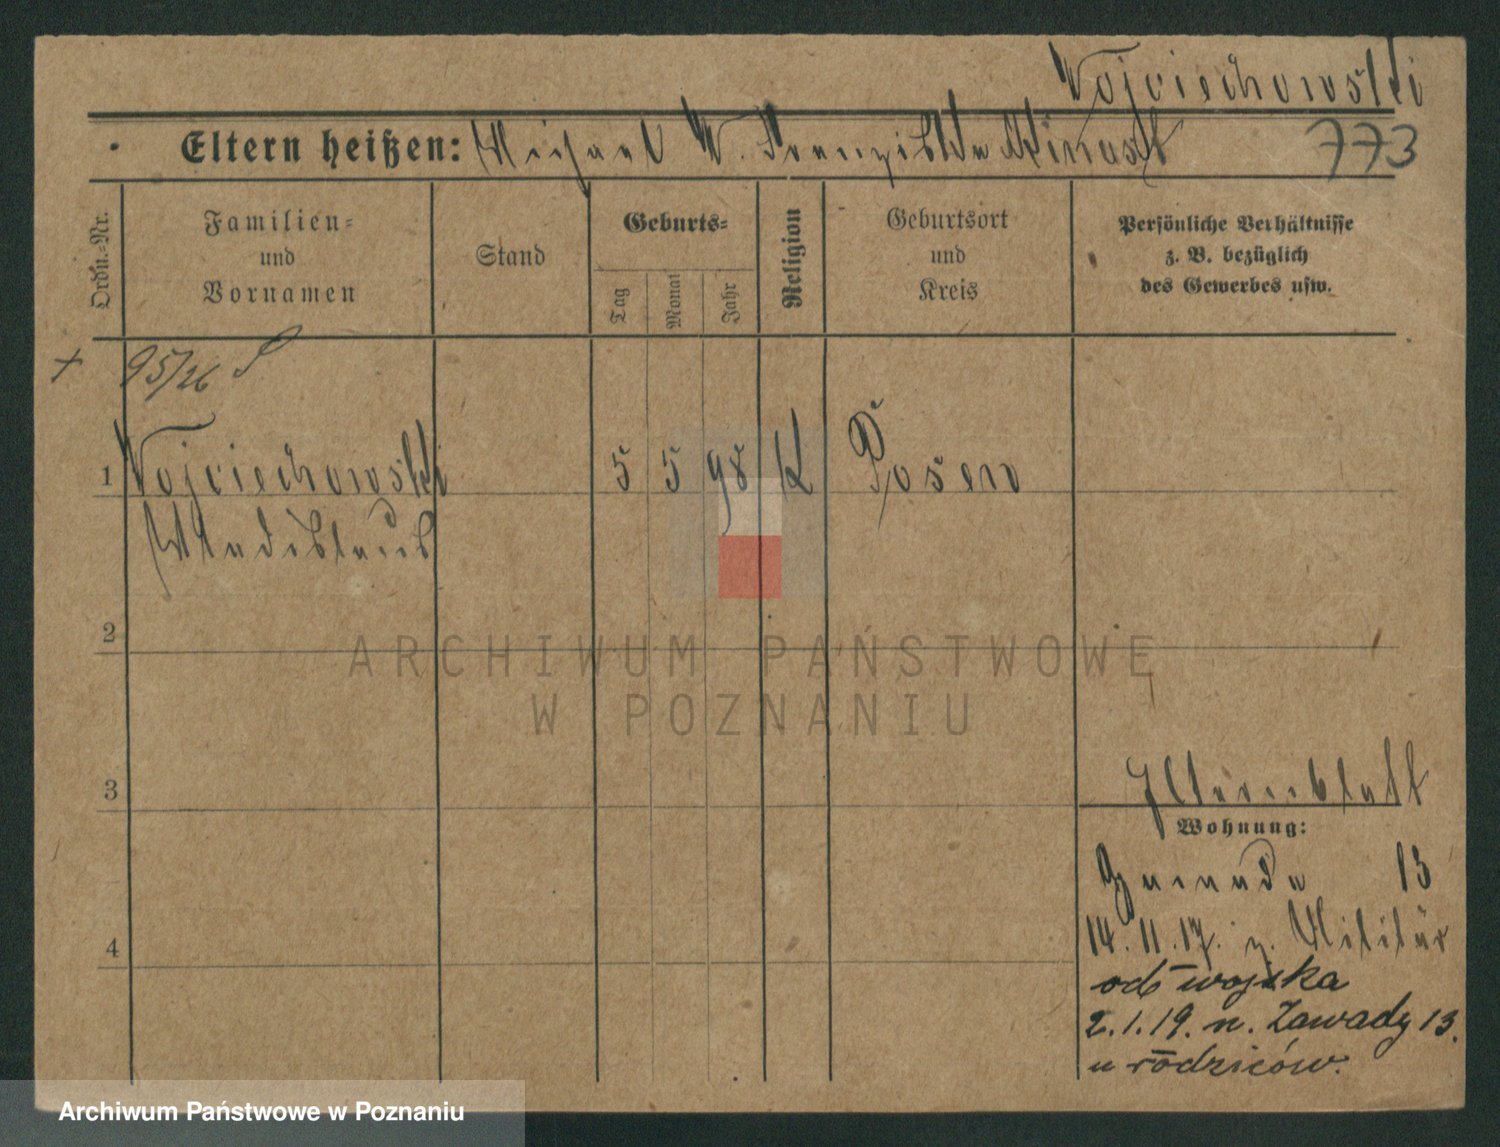 Wojciechowski
Eltern heißen: Michael W. Franziska 773
Ordn.-Nr.
Familien- und Vornamen
Stand
Geburts-
Tag
Monat
Jahr
Religion
Geburtsort und Kreis
Persönliche Verhältnisse
z. B. bezüglich
des Gewerbes usw.
+ 95/26
1 Wojciechowski 5 5 98 K Posen
Wladislaus
2
3
Elternblatt
Wohnung:
13
4
14.11.17. z. Militär
od wojska
2.1.19. n. Zawady 13.
u rodziców.
ARCHIWUM PAŃSTWOWE
W POZNANIU
Archiwum Państwowe w Poznaniu